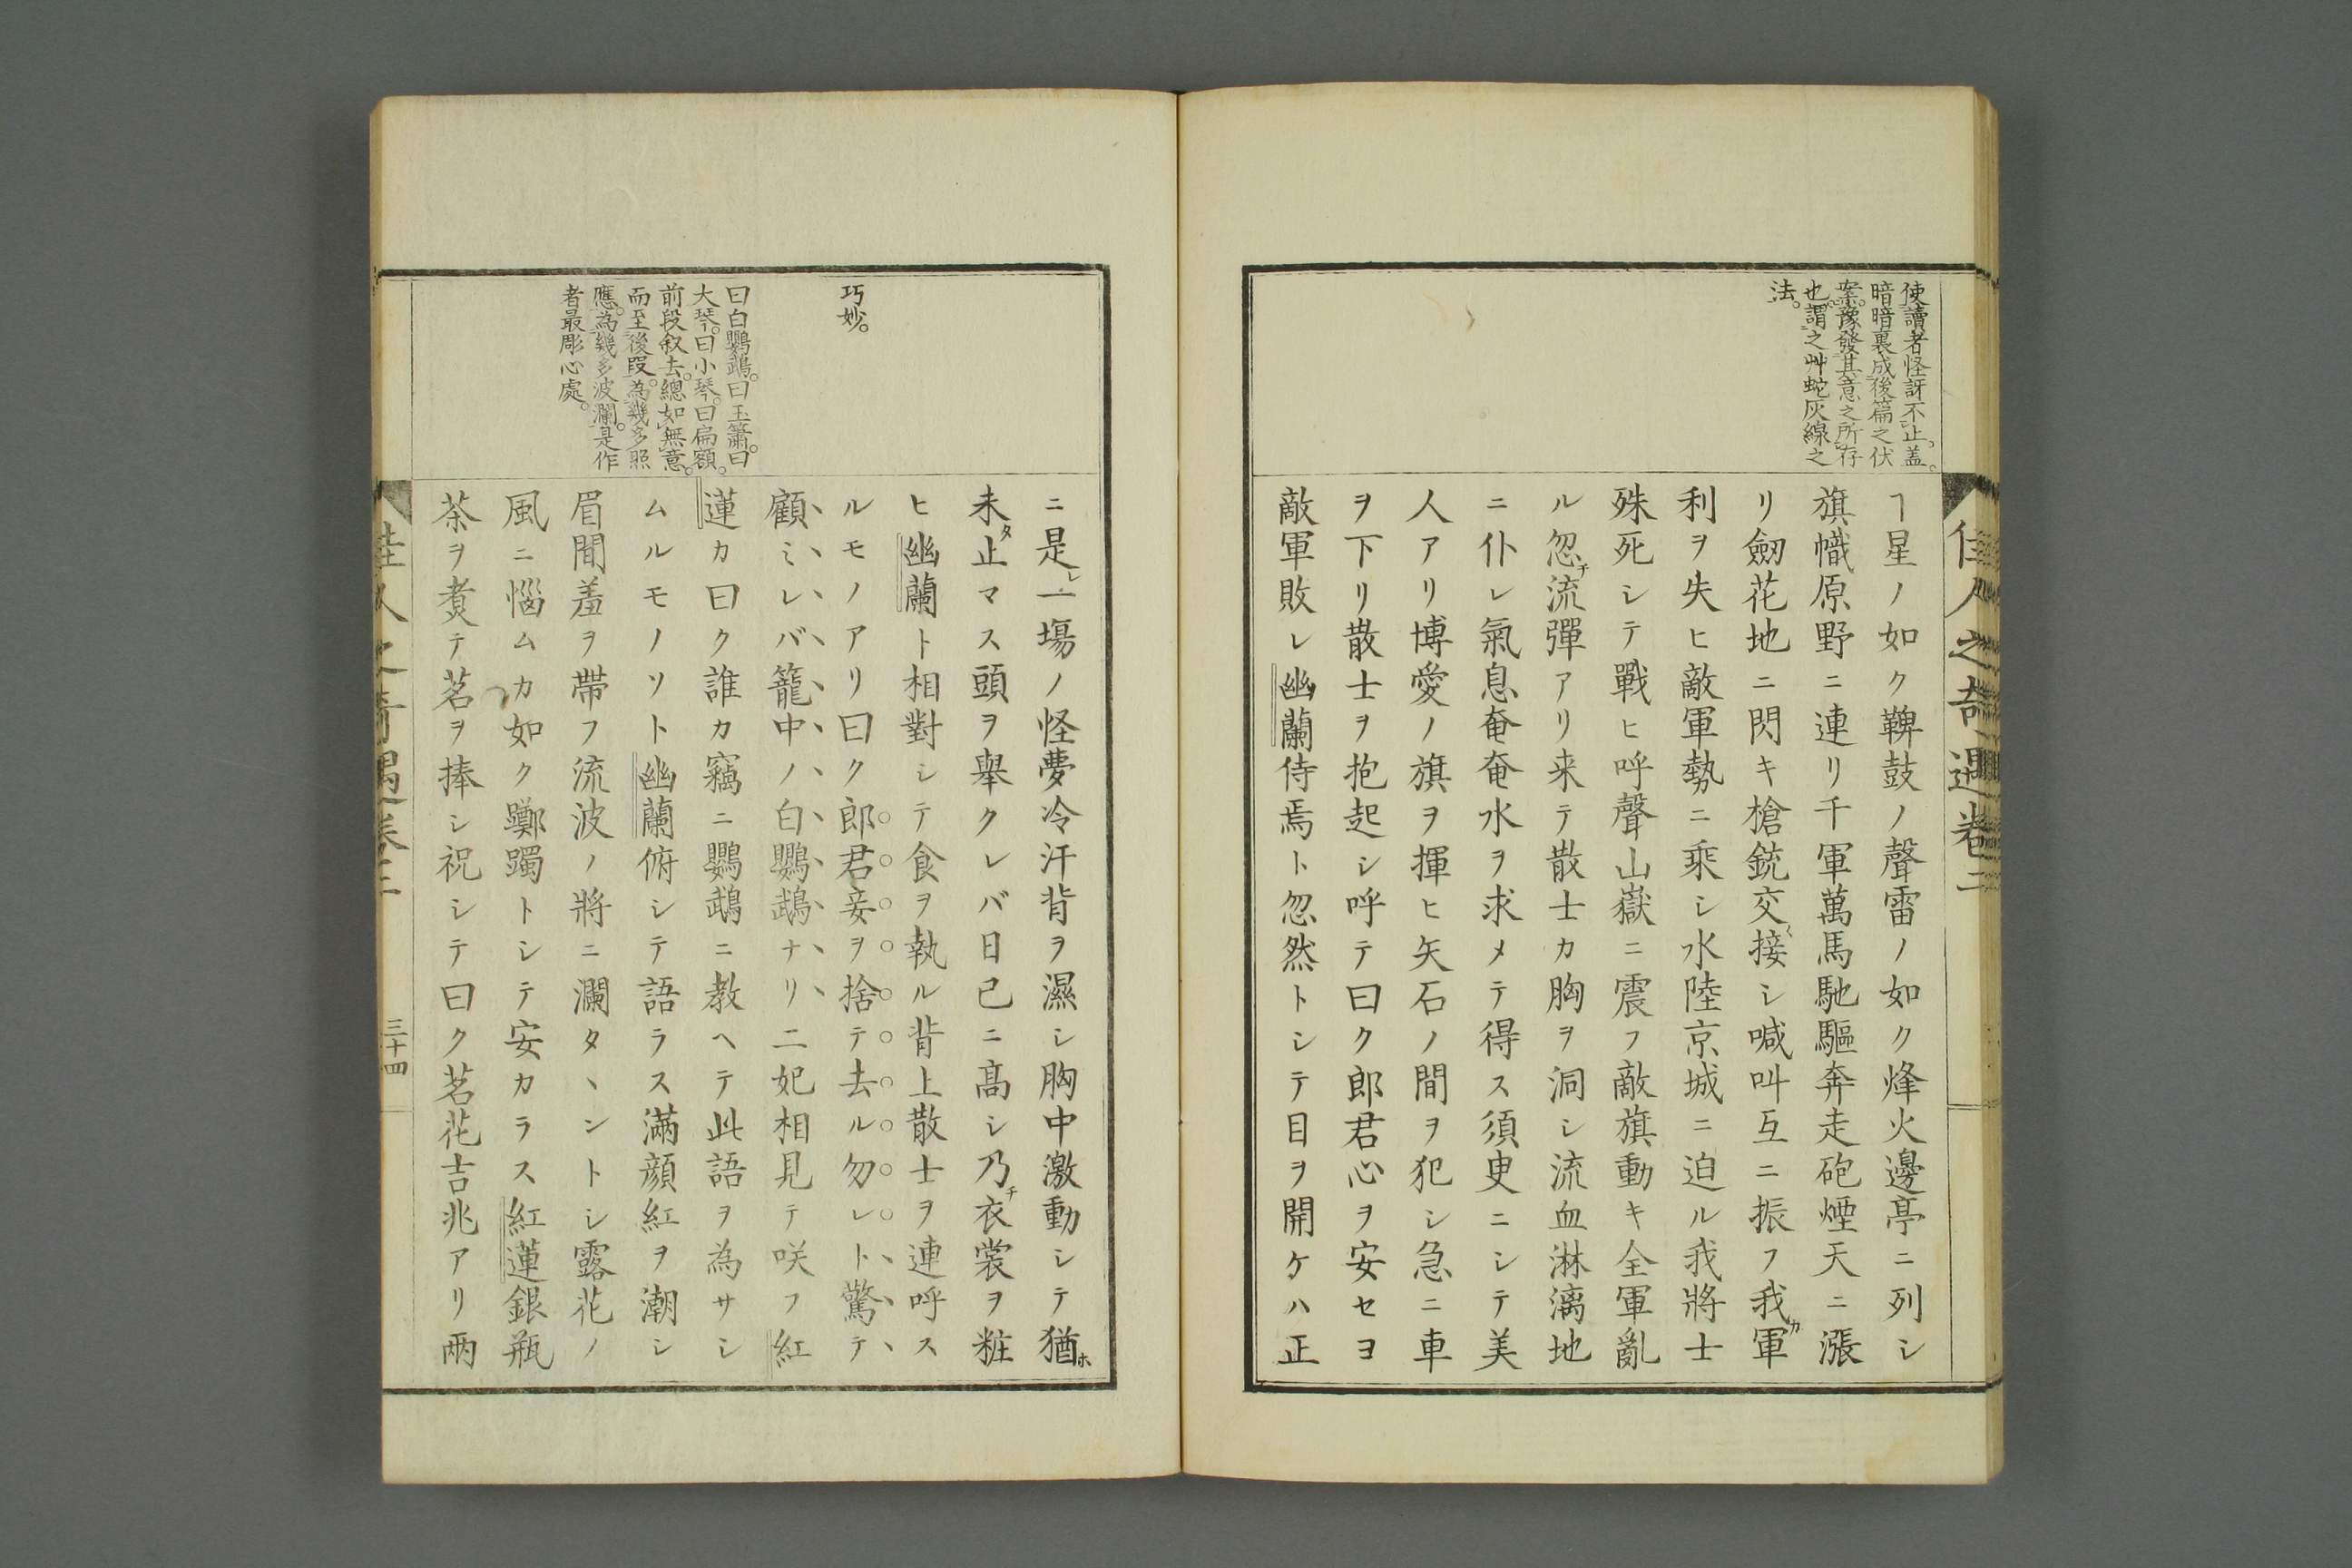 佳人之奇遇卷二
使讀者怪訝不止。蓋
暗暗裏成後篇之伏
案。豫發其意之所存
也。謂之艸蛇灰線之
法。
ヿ星ノ如ク鞞鼓ノ聲雷ノ如ク烽火邊亭ニ列シ
旗幟原野ニ連リ千軍萬馬馳驅奔走砲煙天ニ漲
リ劒花地ニ閃キ槍銃交〻接シ喊叫互ニ振フ我カ軍
利ヲ失ヒ敵軍勢ニ乘シ水陸京城ニ迫ル我將士
殊死シテ戰ヒ呼聲山嶽ニ震フ敵旗動キ全軍亂
ル忽チ流彈アリ来テ散士カ胸ヲ洞シ流血淋漓地
ニ仆レ氣息奄奄水ヲ求メテ得ス須臾ニシテ美
人アリ博愛ノ旗ヲ揮ヒ矢石ノ間ヲ犯シ急ニ車
ヲ下リ散士ヲ抱起シ呼テ曰ク郎君心ヲ安セヨ
敵軍敗レ幽蘭侍焉ト忽然トシテ目ヲ開ケハ正
巧妙。
曰白鸚鵡。曰玉簫。曰
大琴。曰小琴。曰扁額。
前段叙去。總如無意。
而至後段。為幾多照
應。為幾多波瀾。是作
者最彫心處。
ニ是レ一塲ノ怪夢冷汗背ヲ濕シ胸中激動シテ猶ホ
未タ止マス頭ヲ擧クレバ日已ニ高シ乃チ衣裳ヲ粧
ヒ幽蘭ト相對シテ食ヲ執ル背上散士ヲ連呼ス
ルモノアリ曰ク郎君妾ヲ捨テ去ル勿レト驚テ
顧ミレバ籠中ノ白鸚鵡ナリ二妃相見テ咲フ紅
蓮カ曰ク誰カ竊ニ鸚鵡ニ教ヘテ此語ヲ為サシ
ムルモノソト幽蘭俯シテ語ラス滿顔紅ヲ潮シ
眉間羞ヲ帶フ流波ノ將ニ瀾タヽントシ露花ノ
風ニ惱ムカ如ク躑躅トシテ安カラス紅蓮銀瓶
茶ヲ煑テ茗ヲ捧シ祝シテ曰ク茗花吉兆アリ兩
佳人之奇遇卷二
三十四